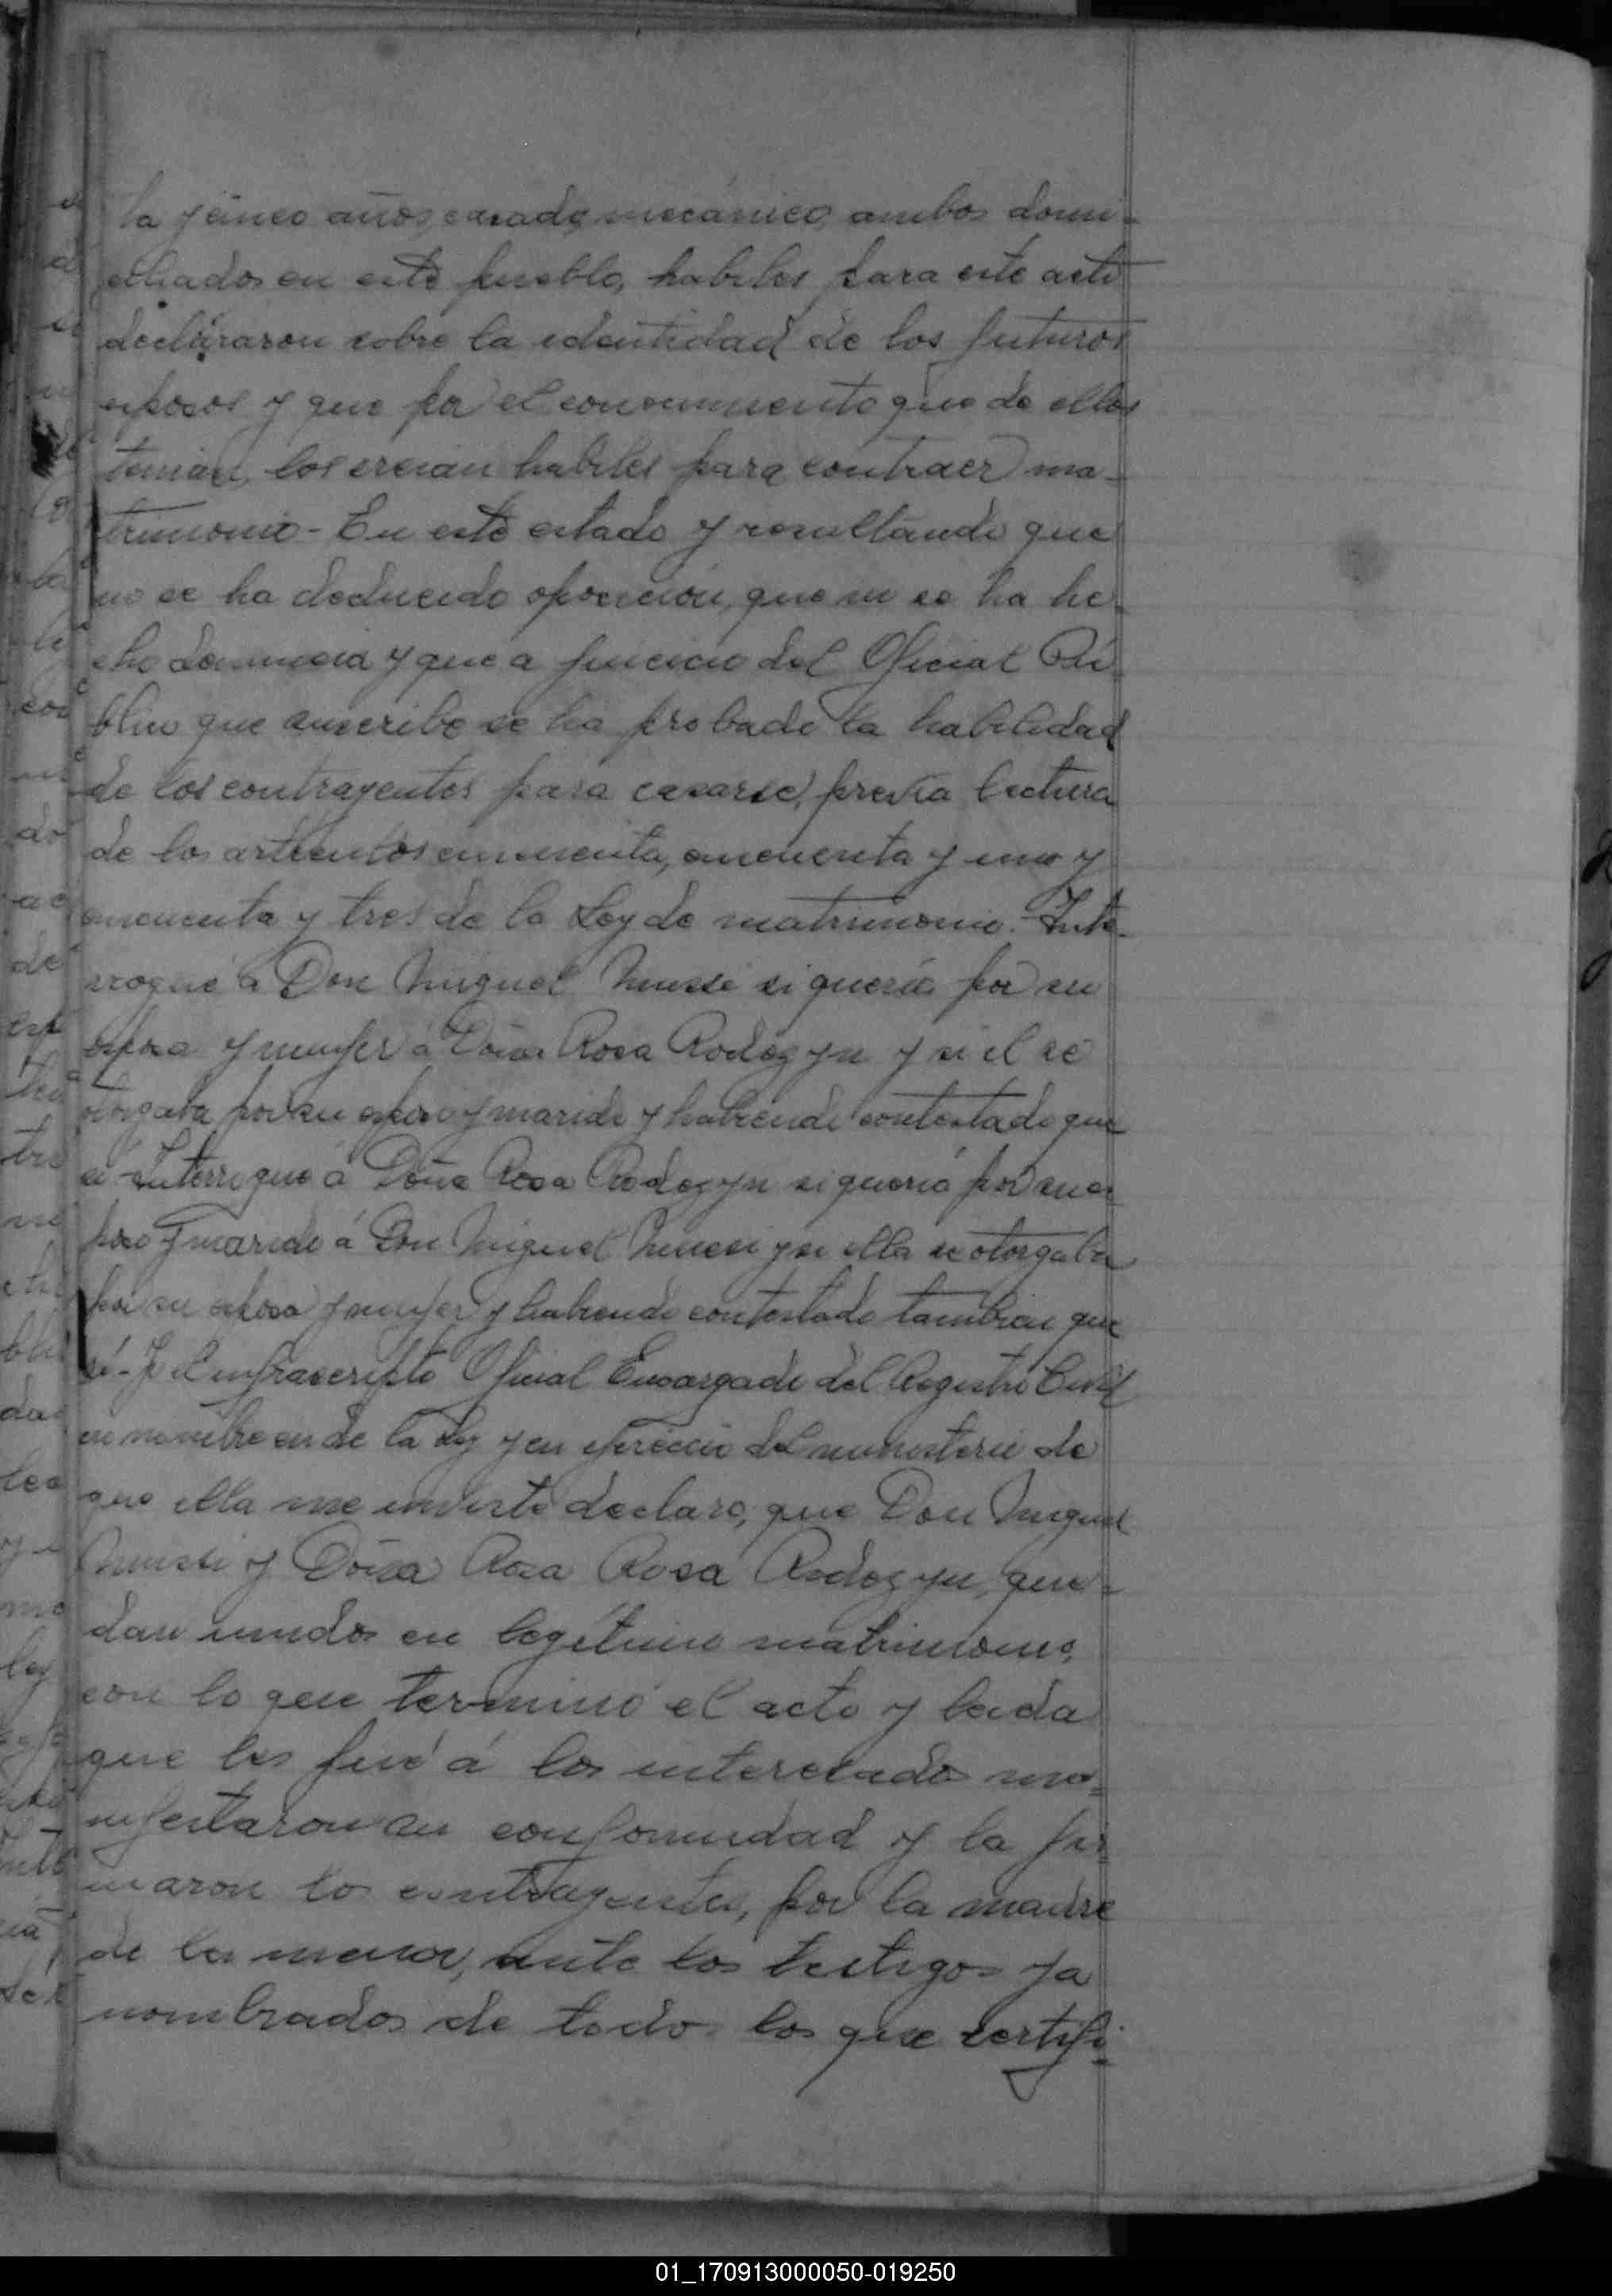 ta y cinco años, casado, mecánico, ambos domi-
ciliados en este pueblo, habiles para este acto
declararon sobre la identidad de los futuros
esposos y que por el conocimiento que de ellos
tenian, los creian habiles para contraer ma-
trimonio - En este estado y resultando que
no se ha deducido oposicion, que ni se ha he-
cho denuncia y que a juicio del Oficial Pú-
blico que suscribe se ha probado la habilidad
de los contrayentes para casarse, previa lectura
de los articulos cincuenta, cincuenta y uno y
cincuenta y tres de la Ley de matrimonio. - Inte-
rrogué a Don Miguel Mussi si queria por su
esposa y mujer á Doña Rosa Rodogyn y si el se
otorgaba por su esposo y marido y habiendo contestado que
si - Interrogué á Doña Rosa Rodogyn si queria por su es-
poso y marido á Don Miguel Mussi y si ella se otorgaba
por su esposa y mujer y habiendo contestado tambien que
sí - Yo el infrascripto Oficial Encargado del Registro Civil
en nombre en de la Ley y en ejercicio del ministerio de
que ella me inviste declaro, que Don Miguel
Mussi y Doña Rosa Rosa Rodogyn, que-
dan unidos en legítimo matrimonio,
con lo que terminó el acto y leida
que les fué á los interesados ma-
nifestaron su conformidad y la fir-
maron los contrayentes, por la madre
de la menor, ante los testigos ya
nombrados de todo los que certifi-
01_170913000050-019250